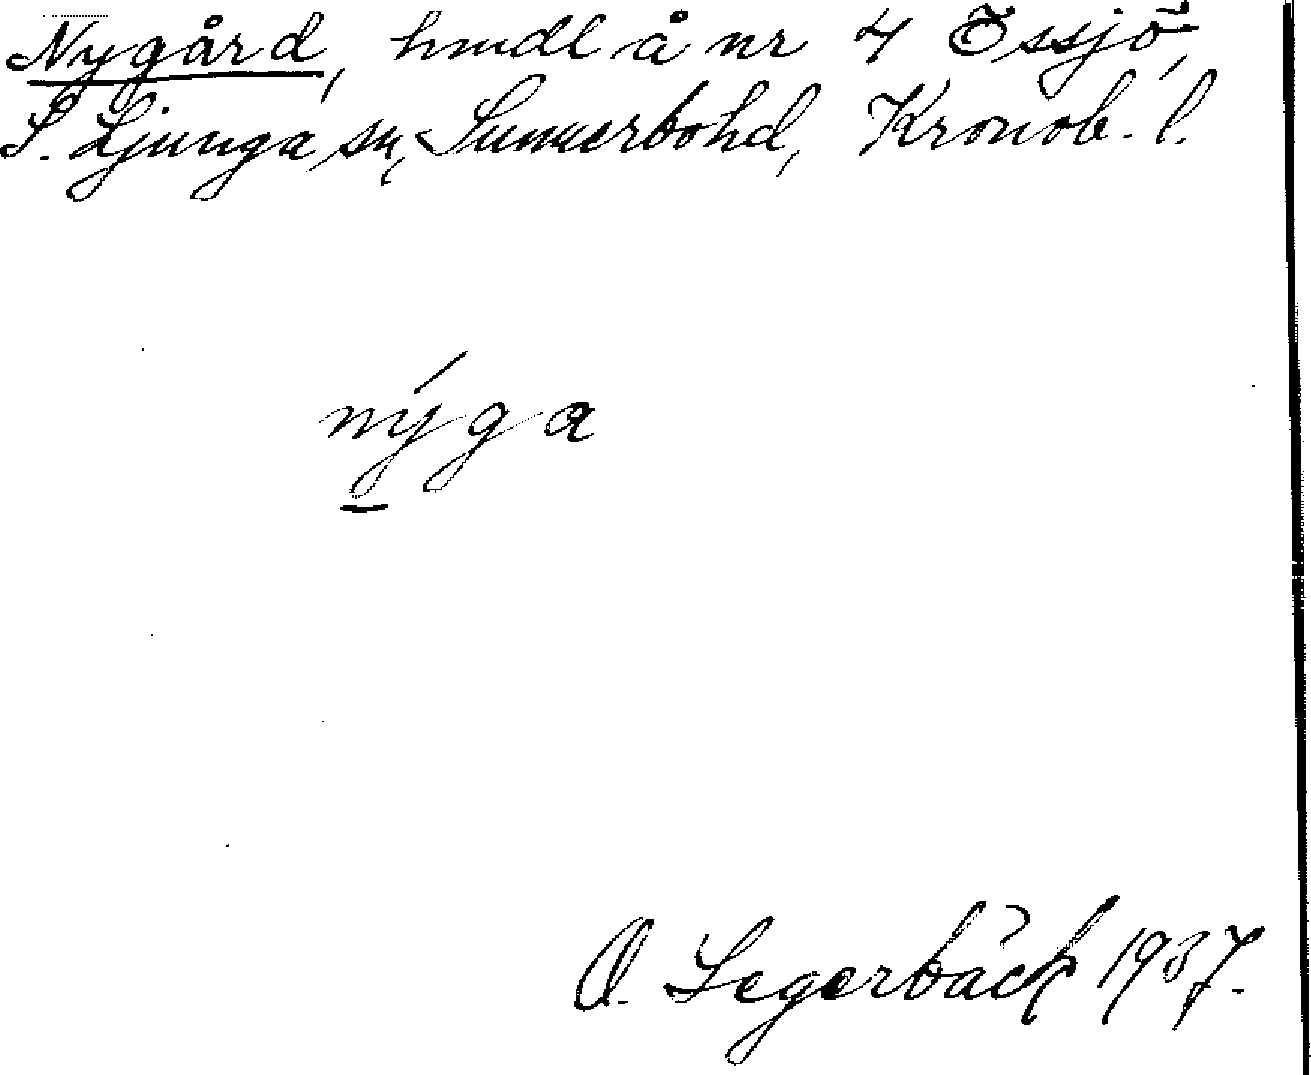 Nygård, hmdl å nr 4 Össjö,
S. Ljunga sn, Sunnerbohd, Kronob. l.
nýga
O. Segerbäck 1937.